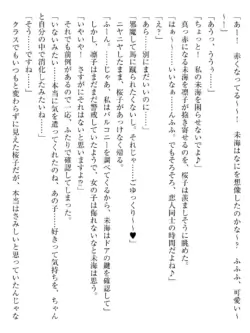 「あー！　赤くなってる～！　未海はなにを想像したのかなー？　ふふふ、可愛い！」
「あうう～、ううう～！」
「ちょっと！　私の未海を困らせないでよ？」
真っ赤になる未海を凛子が抱き寄せるのを、桜子は羨ましそうに眺めた。
「うふふ、いいなぁ～～～！　んふふ、でもそろそろ、恋人同士の時間だよね♪」
「あら……別にまだいいのに」
「邪魔して馬に蹴られたくないし、それじゃ……ごゆっくり～～♥」
ニヤニヤしたまま、桜子があっけなく帰る。
「ふーん。……じゃあ、私はバルコニーを調べてくるから、未海はドアの鍵を確認して」
しかし、凛子はまだまだ警戒していたようで、女の子は侮れないなと未海は思う。
「いやいや！　さすがにそれはないと思うけど……」
それでも前例があるので一応、ふたりで確認してしまった。
「いないみたい……本当に気を遣ってくれたのね。あの子……好きって気持ちを、ちゃんと自分の中で消したみたいね……」
「そうですね……」
クラスでもいつもと変わらずに見えた桜子だが、本当はさみしいと思っていたんじゃな